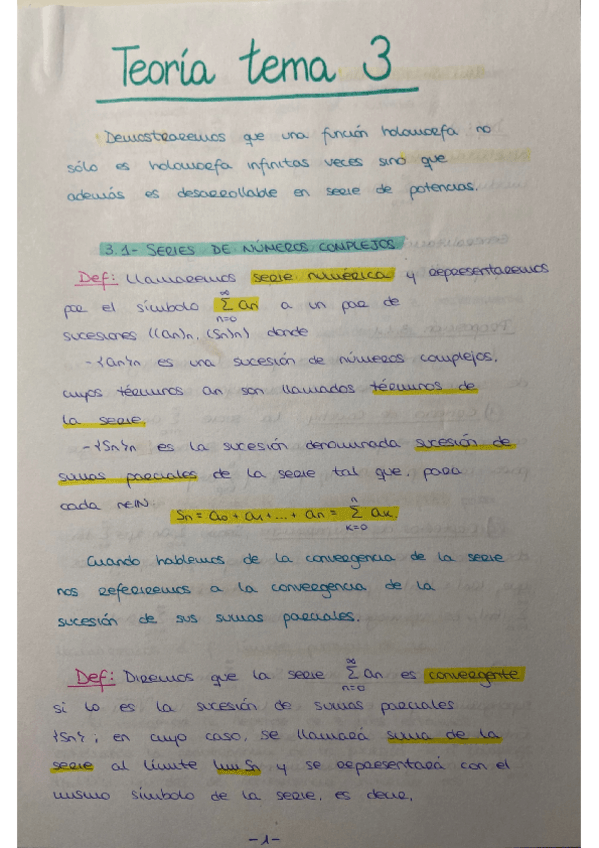 Teoría tema 3
Demostraremos que una función holomorfa no
sólo es holomorfa infinitas veces sino que
además es desarrollable en serie de potencias.
3.1- SERIES DE NÚMEROS COMPLEJOS
Def: Llamaremos serie numérica y representaremos
por el símbolo ∑_{n=0}^{∞} an a un par de
sucesiones ((an)n, (Sn)n) donde
-{an}n es una sucesión de números complejos,
cuyos términos an son llamados términos de
la serie.
-{Sn}n es la sucesión denominada sucesión de
sumas parciales de la serie tal que, para
cada n∈ℕ
Sn = a0 + a1 + ... + an = ∑_{k=0}^{n} ak
Cuando hablemos de la convergencia de la serie
nos referiremos a la convergencia de la
sucesión de sus sumas parciales.
Def: Diremos que la serie ∑_{n=0}^{∞} an es convergente
si lo es la sucesión de sumas parciales
{Sn}; en cuyo caso, se llamará suma de la
serie al límite lim Sn y se representará con el
mismo símbolo de la serie, es decir,
-1-